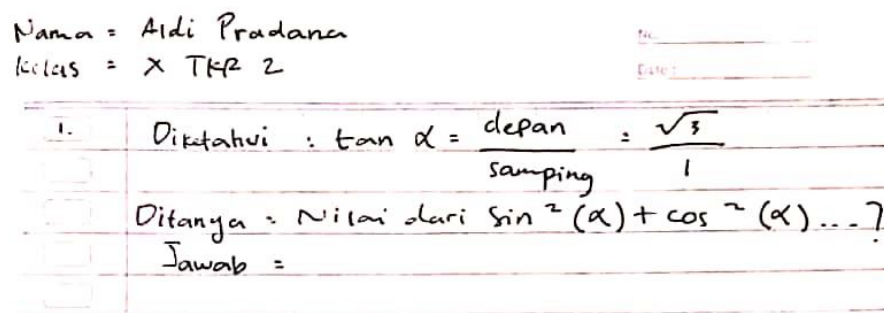 Nama = Aldi Pradana
Kelas = X TKR 2
No.
Date :
1. Diketahui : tan α = depan / samping = √3 / 1
Ditanya : Nilai dari Sin² (α) + cos² (α) ... ?
Jawab =